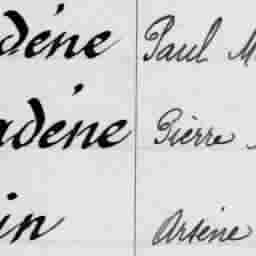 déne Paul M
adéne Pierre
in Arsène